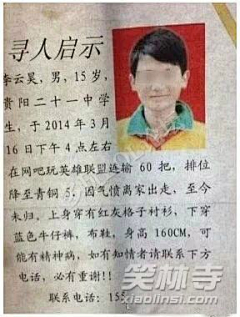 寻人启示
李云昊，男，15岁，
贵阳二十一中学
生，于2014年3月
16日下午4点左右
在网吧玩英雄联盟连输60把，排位
降至青铜5，因气愤离家出走，至今
未归，上身穿有红灰格子衬衫，下穿
蓝色牛仔裤，布鞋，身高160CM，可
能有精神病，如有知情者请联系下方
电话，必有重谢!!
联系电话：155
笑林寺
xiaolinsi.com